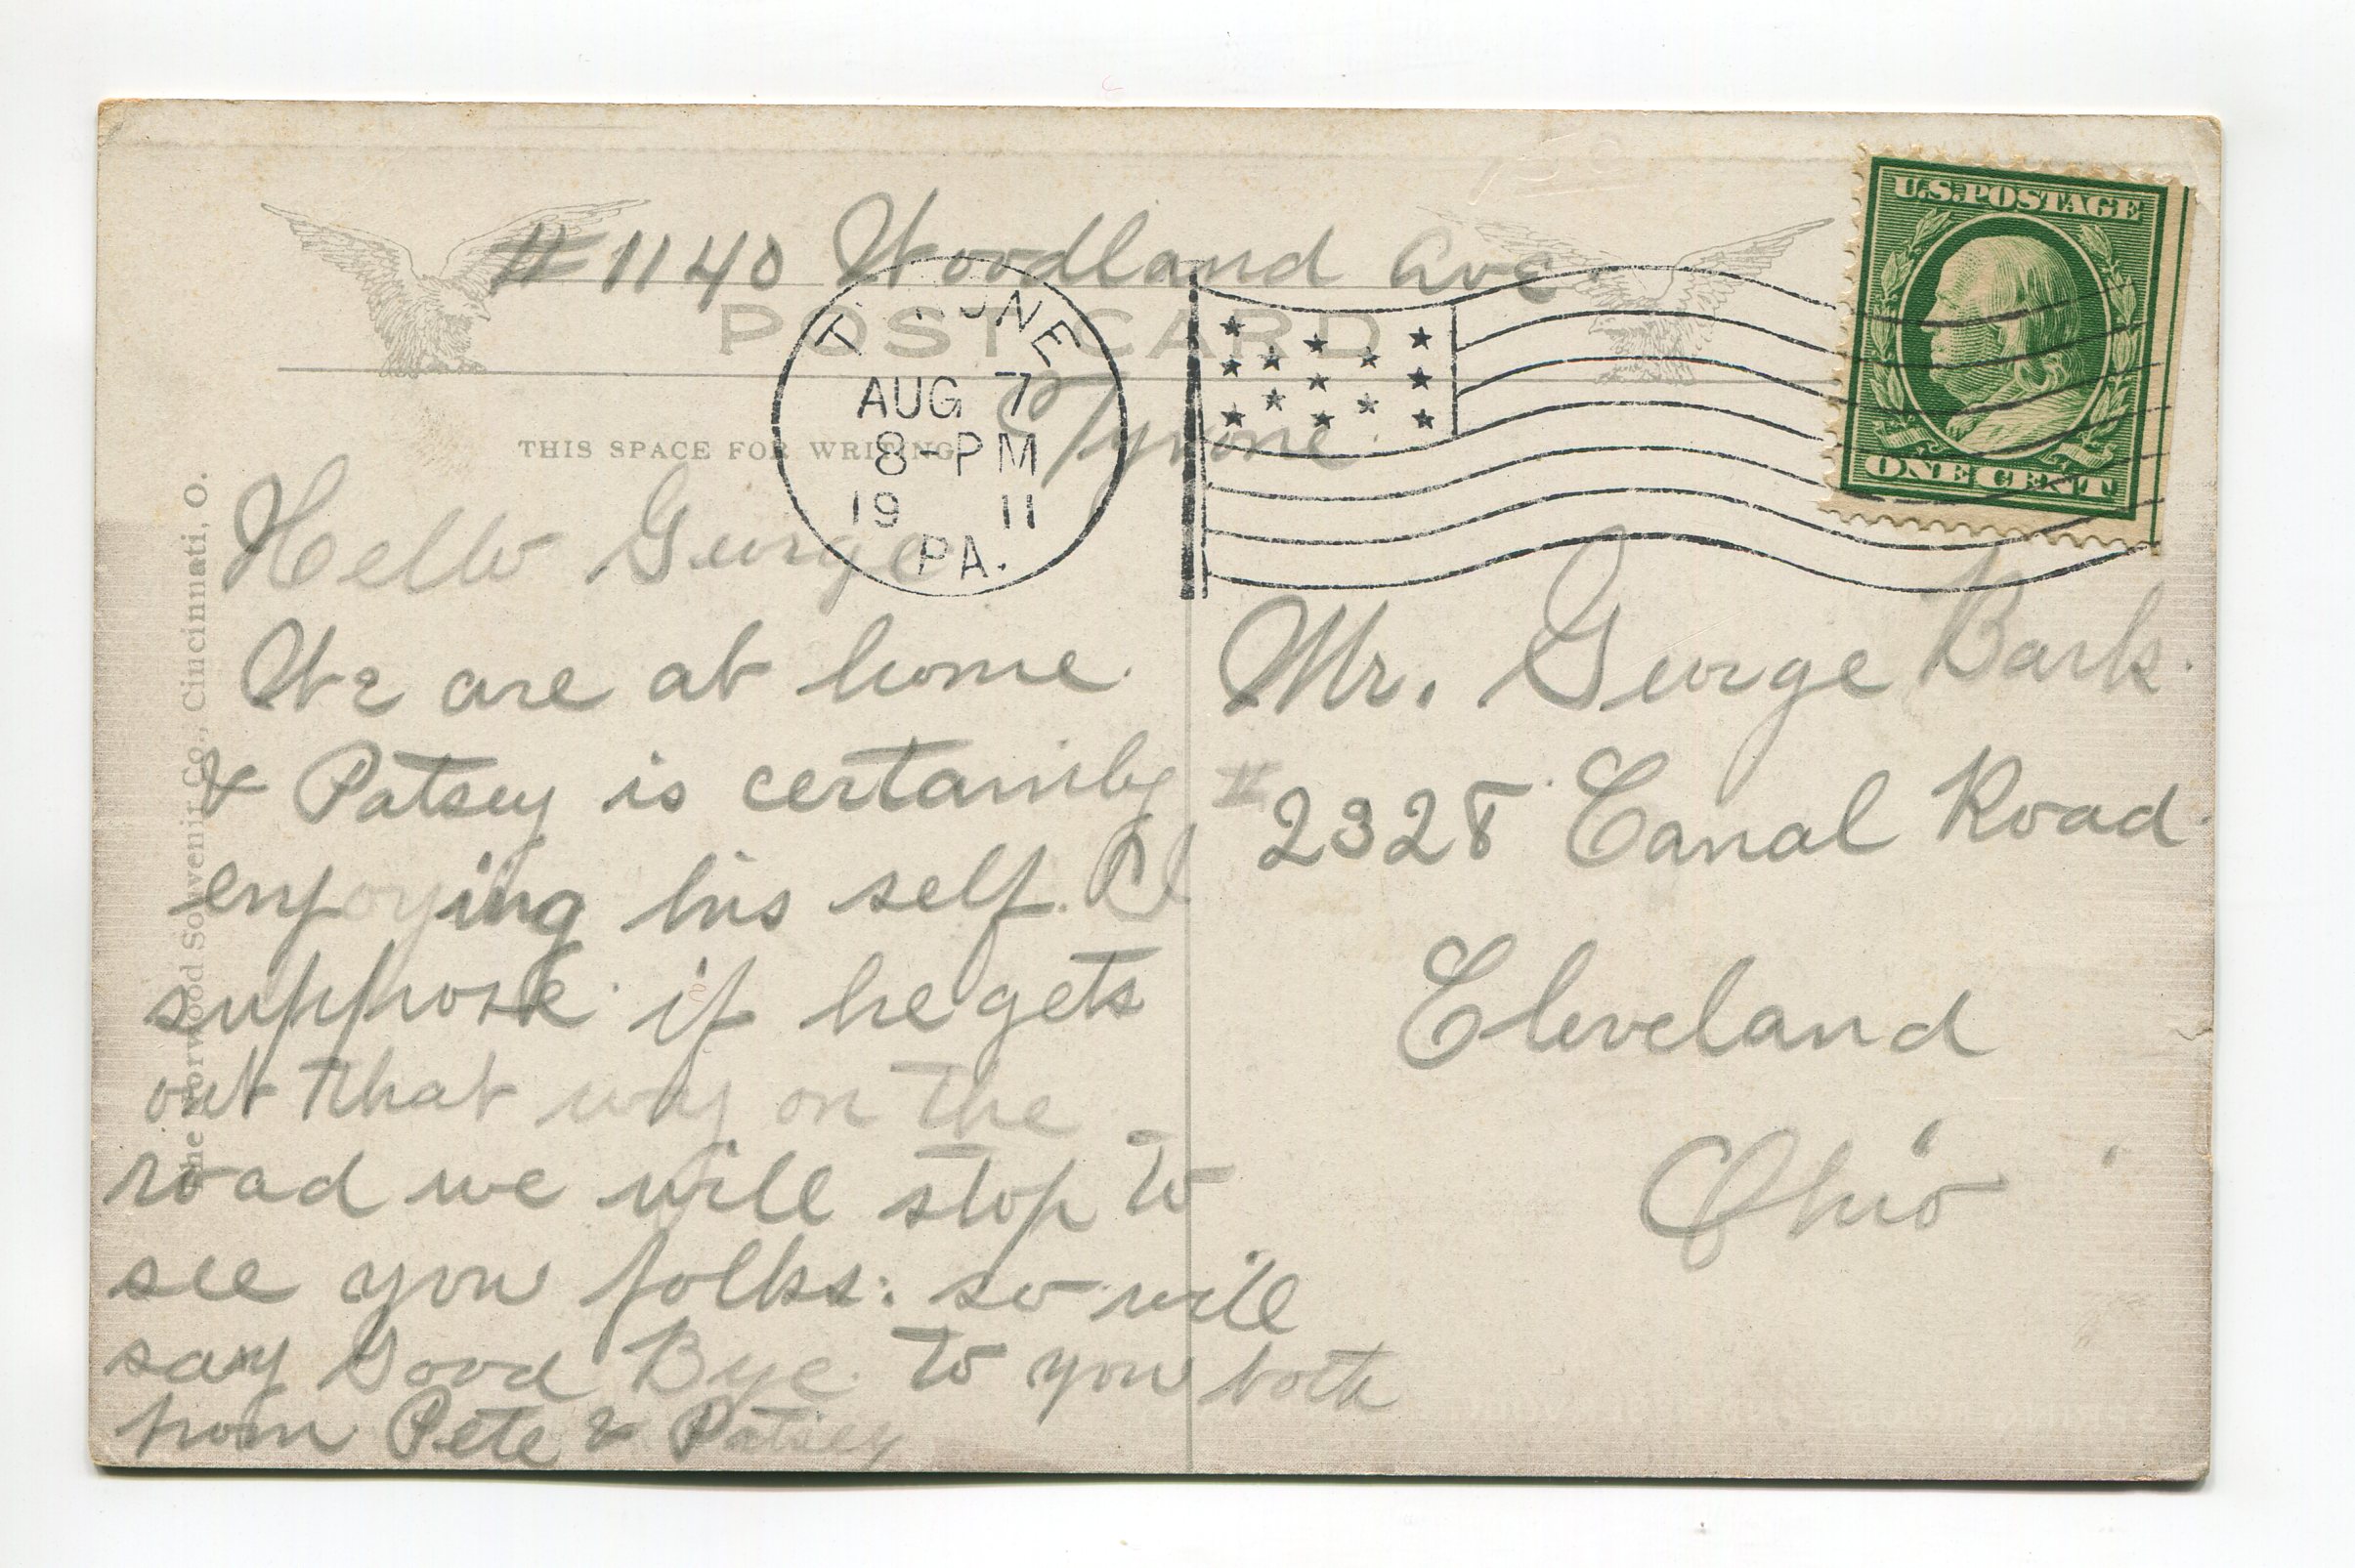 #1140 Woodland Ave.
POST CARD
Tyrone.
AUG 7
8-PM
19 11
PA.
U.S. POSTAGE
ONE CENT
THIS SPACE FOR WRITING
The Norwood Souvenir Co., Cincinnati, O.
Hello George
We are at home.
& Patsey is certainly
enjoying his self. I
suppose if he gets
out that way on the
road we will stop to
see you folks: so will
say Good Bye to you both
from Pete & Patsey
Mr. George Bark.
# 2328 Canal Road.
Cleveland
Ohio